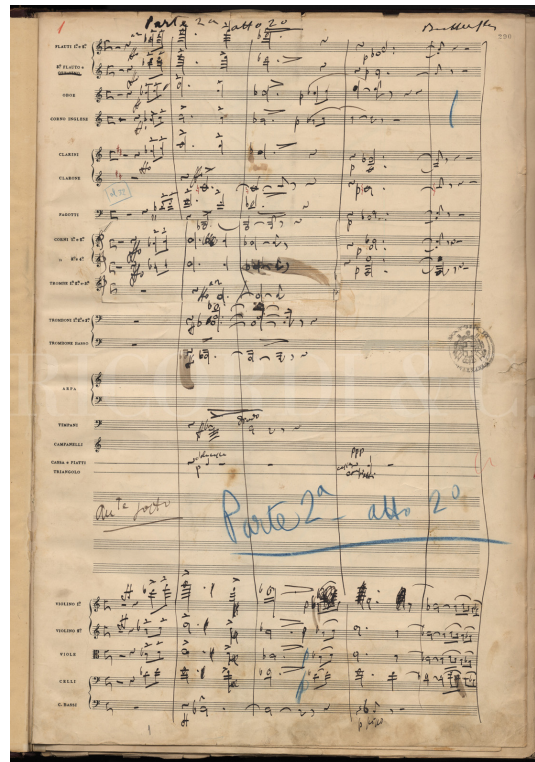 Parte 2ª atto 2º
Butterfly
FLAUTI 1º e 2º
3º FLAUTO e
OTTAVINO
OBOE
CORNO INGLESE
CLARINI
CLARONE
FAGOTTI
CORNI 1º e 2º
3º e 4º
TROMBE 1ª 2ª e 3ª
TROMBONI 1º 2º e 3º
TROMBONE BASSO
ARPA
TIMPANI
CAMPANELLI
CASSA e PIATTI
TRIANGOLO
ppp
Parte 2ª - atto 2º
RICORDI & C.
VIOLINO 1º
VIOLINO 2º
VIOLE
CELLI
C. BASSI